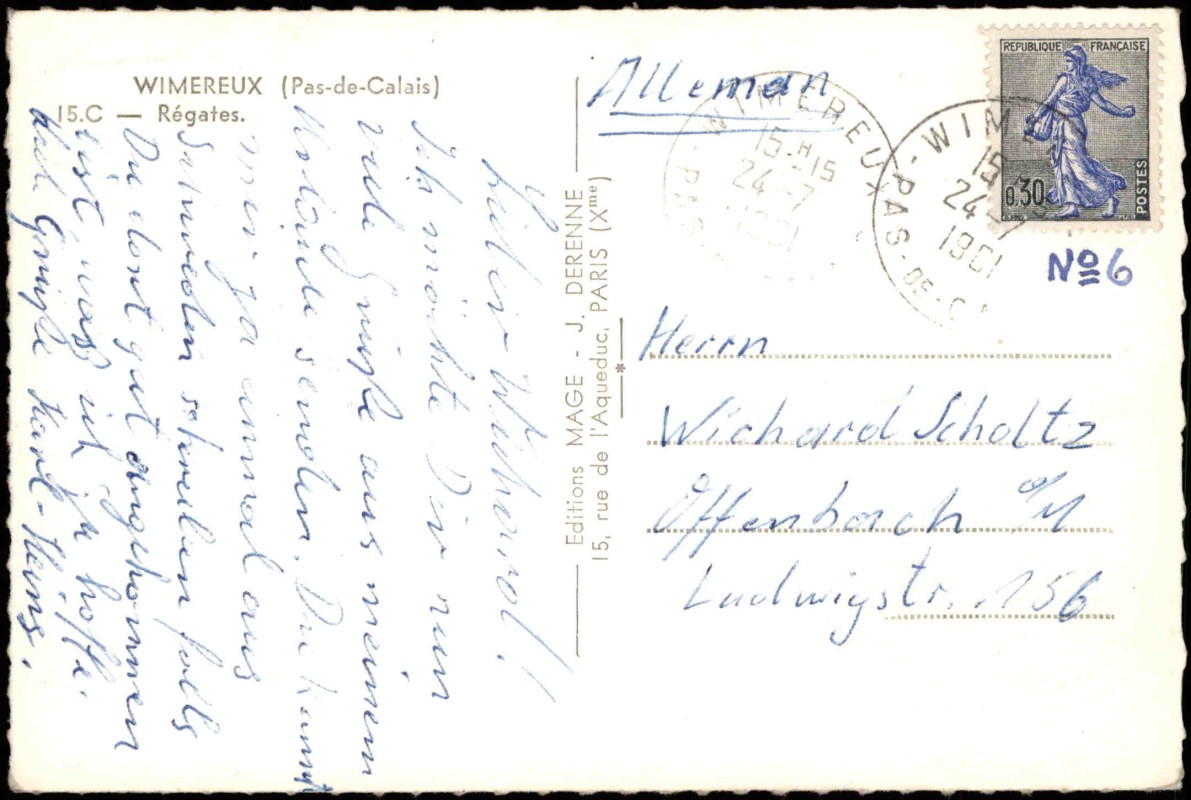 WIMEREUX (Pas-de-Calais)
15.C — Régates.
Lieber Wichard!
Ich möchte Dir nun
viele Grüße aus meinem
Urlaub senden. Du kannst
mir ja einmal aus
Schweden schreiben falls
Du dort gut angekommen
bist, was ich ja hoffe.
Herzl. Grüße Karl-Heinz.
Editions MAGE - J. DERENNE
15, rue de l'Aqueduc, PARIS (Xme)
Alleman
WIMEREUX
15 H 15
24-7
1961
PAS
REPUBLIQUE FRANÇAISE
0,30
POSTES
WIME
15
24-7
1961
PAS-DE-CA
No 6
Herrn
Wichard Scholtz
Offenbach a/M
Ludwigstr. 156